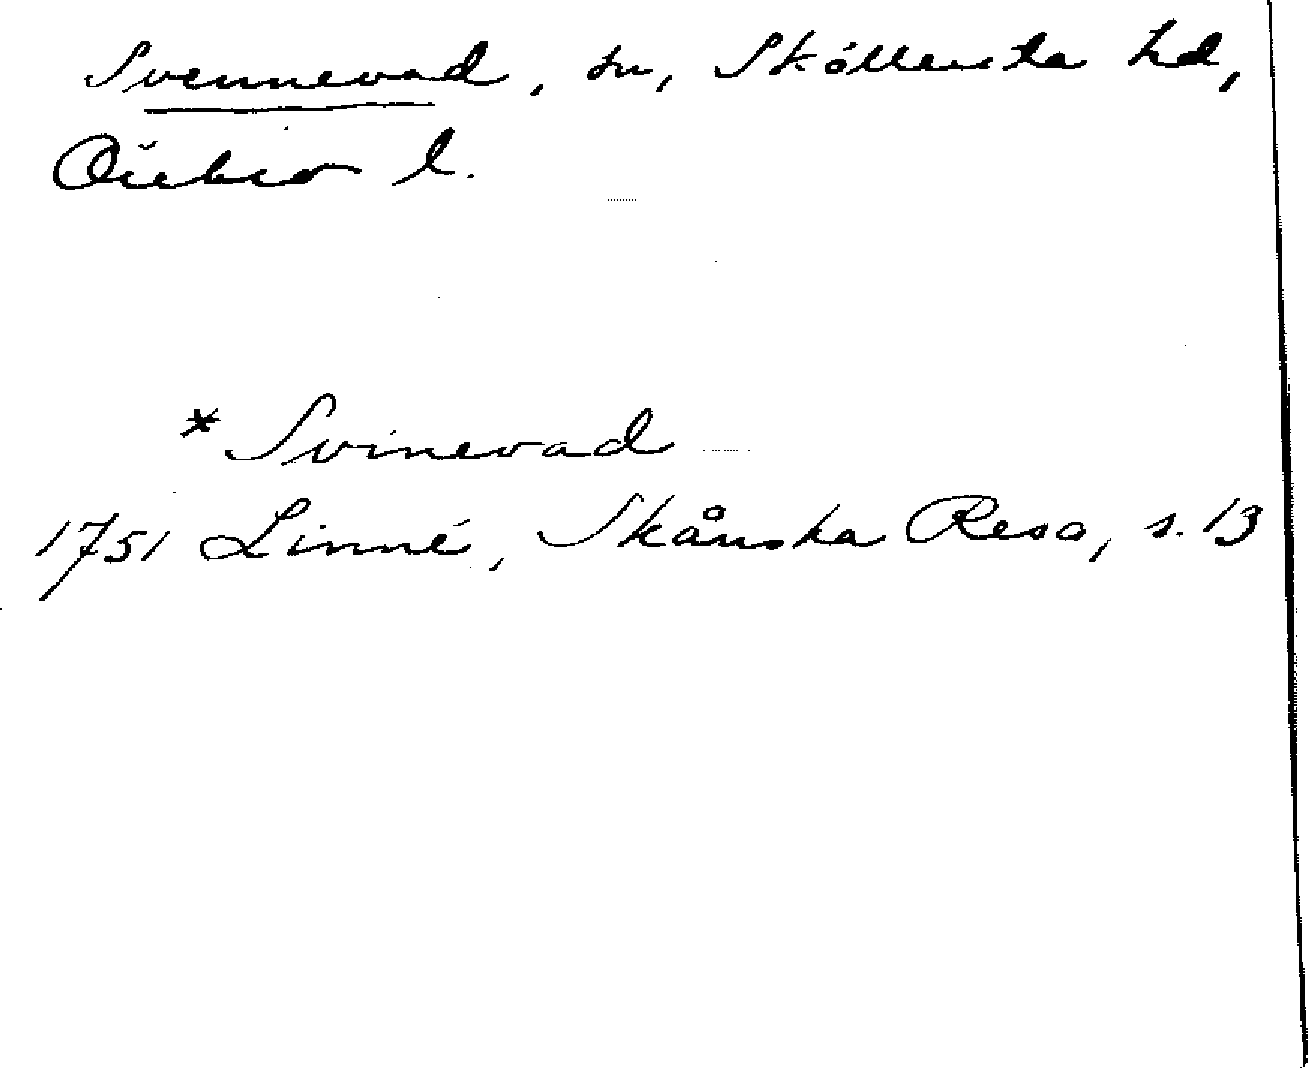 Svennevad, sn, Sköllersta hd,
Örebro l.
* Svinevad
1751 Linné, Skånska Resa, s. 13